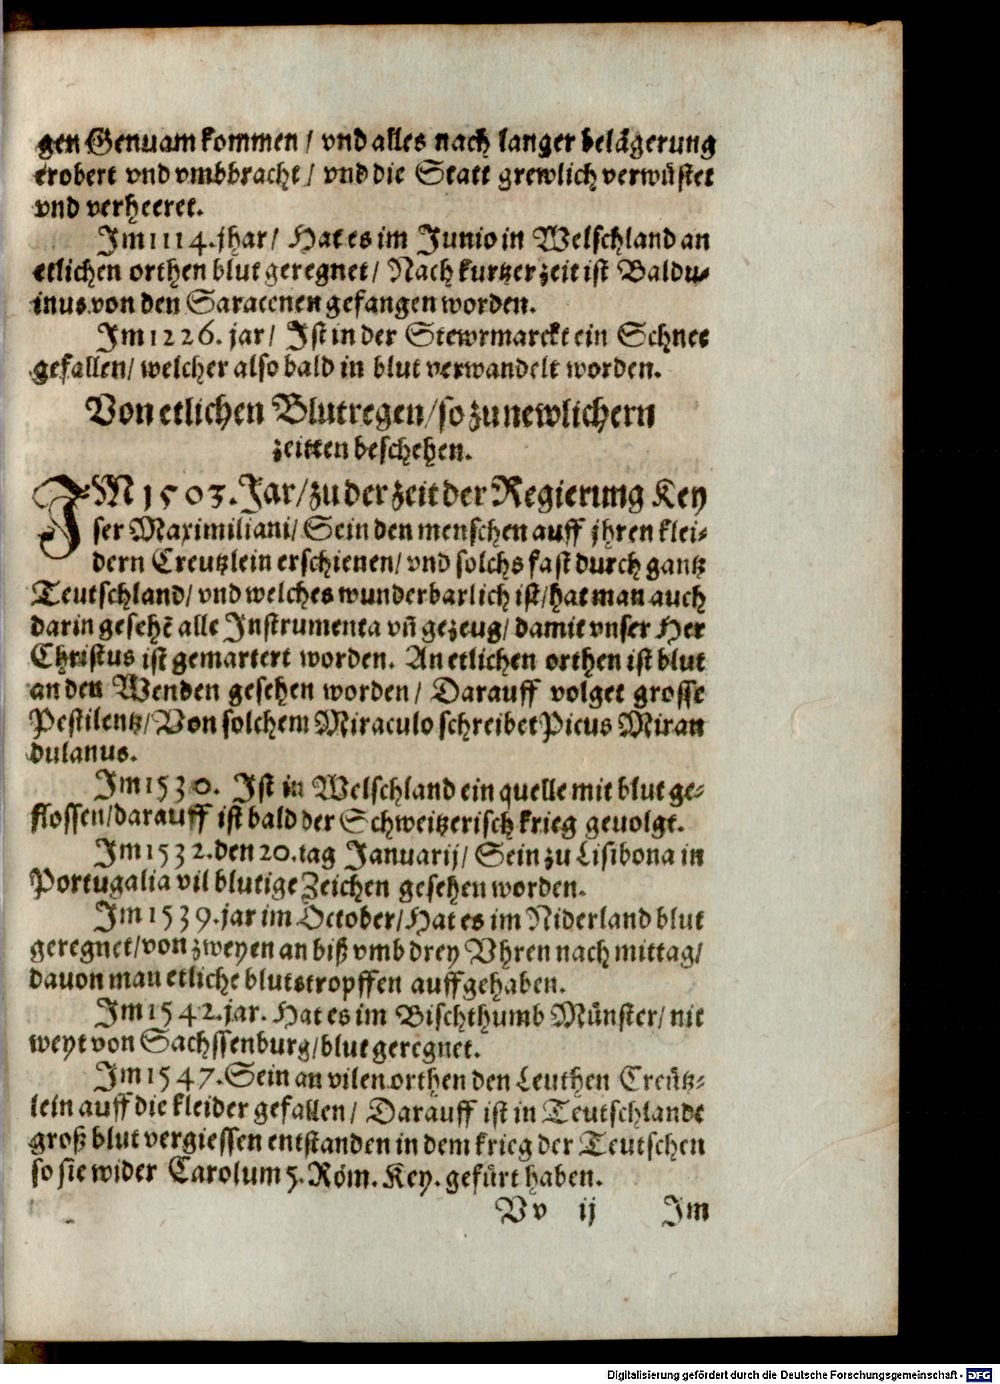 gen Genuam kommen / vnd alles nach langer belägerung
erobert vnd vmbbracht / vnd die Statt grewlich verwüstet
vnd verheeret.
Im 1114. jhar / Hat es im Junio in Welschland an
etlichen orthen blut geregnet / Nach kurtzer zeit ist Baldu-
inus von den Saracenen gefangen worden.
Im 1226. jar / Ist in der Stewrmarckt ein Schnee
gefallen / welcher also bald in blut verwandelt worden.
Von etlichen Blutregen / so zu newlichern
zeitten beschehen.
IM 1503. Jar / zu der zeit der Regierung Key
ser Maximiliani / Sein den menschen auff jhren klei-
dern Creutzlein erschienen / vnd solchs fast durch gantz
Teutschland / vnd welches wunderbarlich ist / hat man auch
darin gesehē alle Instrumenta vñ gezeug / damit vnser Her
Christus ist gemartert worden. An etlichen orthen ist blut
an den Wenden gesehen worden / Darauff volget grosse
Pestilentz / Von solchem Miraculo schreibet Picus Miran
dulanus.
Im 1530. Ist in Welschland ein quelle mit blut ge-
flossen / darauff ist bald der Schweitzerisch krieg geuolgt.
Im 1532. den 20. tag Januarij / Sein zu Lisibona in
Portugalia vil blutige Zeichen gesehen worden.
Im 1539. jar im October / Hat es im Niderland blut
geregnet / von zweyen an biß vmb drey Vhren nach mittag /
dauon man etliche blutstropffen auffgehaben.
Im 1542. jar. Hat es im Bischthumb Münster / nit
weyt von Sachssenburg / blut geregnet.
Im 1547. Sein an vilen orthen den Leuthen Creütz-
lein auff die kleider gefallen / Darauff ist in Teutschlandt
groß blut vergiessen entstanden in dem krieg der Teutschen
so sie wider Carolum 5. Röm. Key. gefürt haben.
Vv ij Im
Digitalisierung gefördert durch die Deutsche Forschungsgemeinschaft - DFG